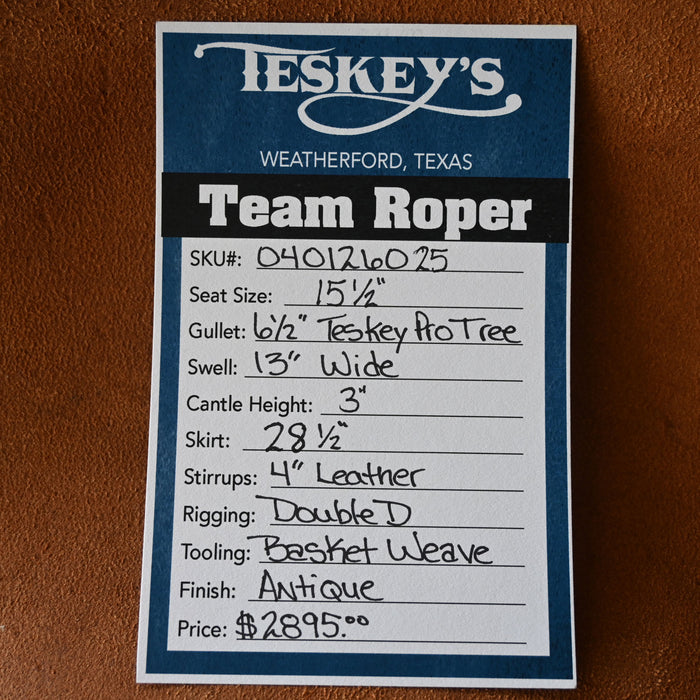 TESKEY'S
WEATHERFORD, TEXAS
Team Roper
SKU#: 040126025
Seat Size: 15 1/2"
Gullet: 6 1/2" Teskey Pro Tree
Swell: 13" Wide
Cantle Height: 3"
Skirt: 28 1/2"
Stirrups: 4" Leather
Rigging: Double D
Tooling: Basket Weave
Finish: Antique
Price: $2895.00